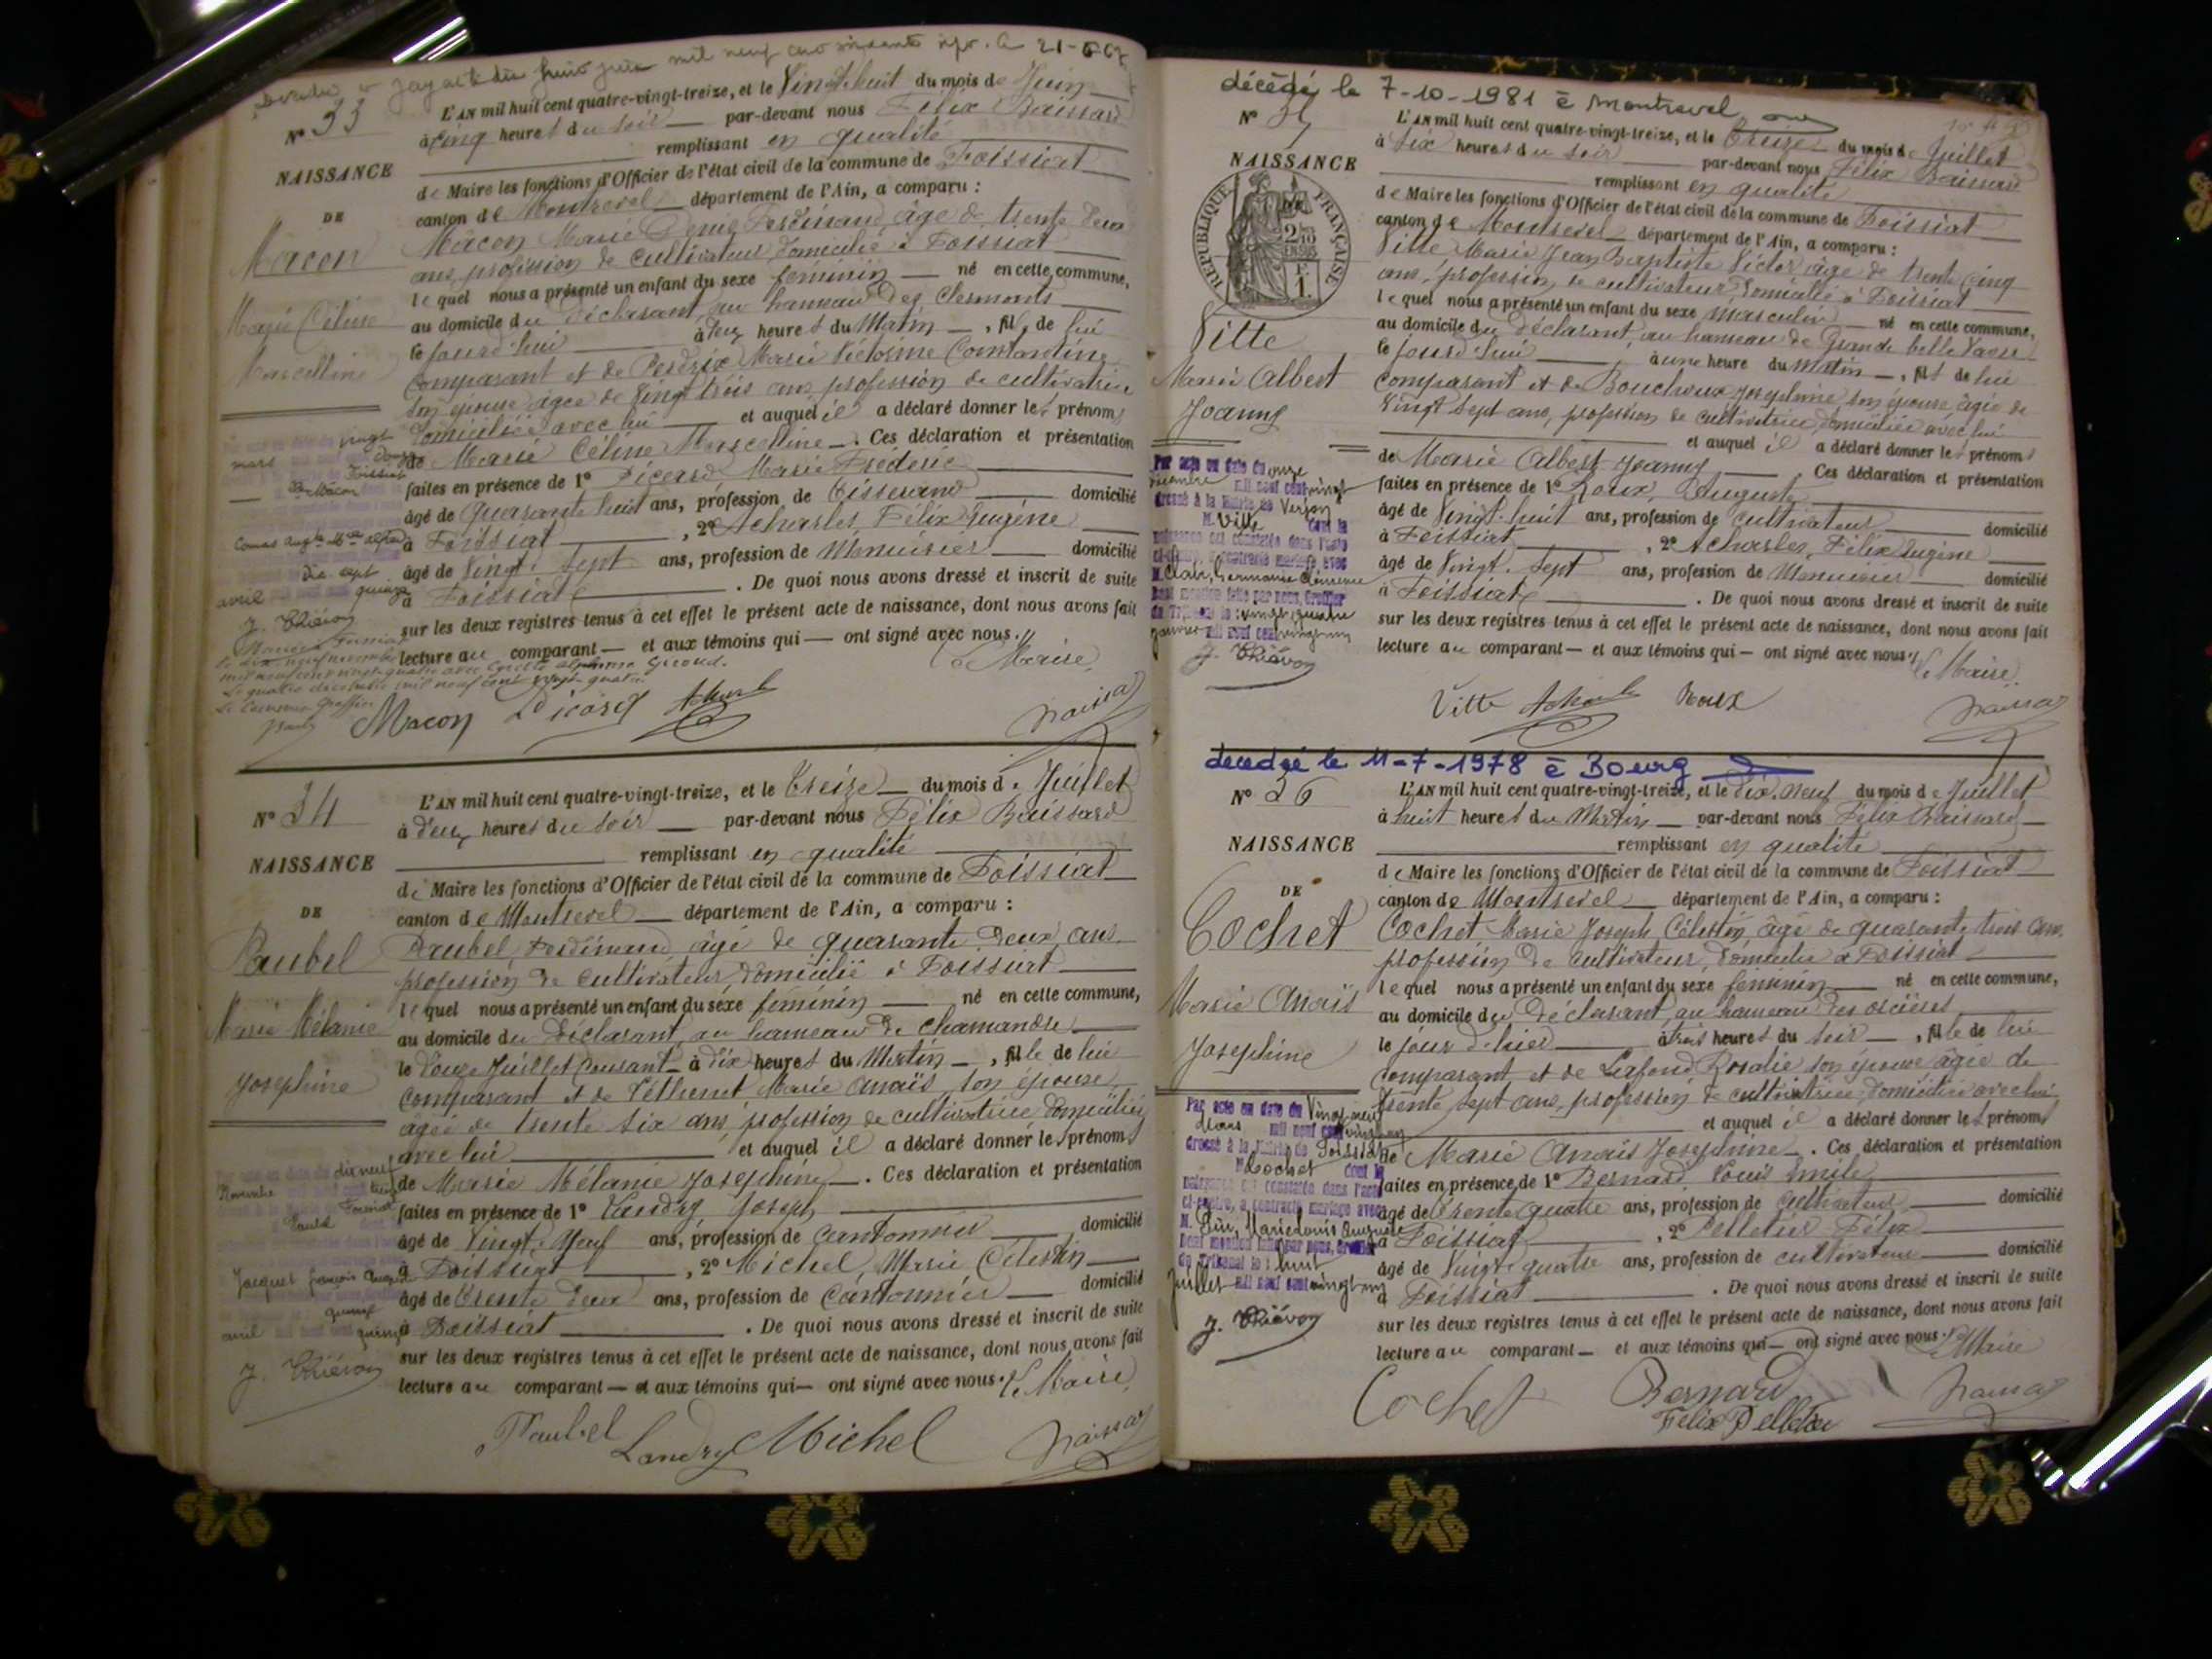 mil neuf cent soixante sept. le 21-6-67
N° 33
L'AN mil huit cent quatre-vingt-treize, et le Vingt-huit du mois de Juin
à Cinq heures du soir par-devant nous Félix Baissard
remplissant en qualité
NAISSANCE
de Maire les fonctions d'Officier de l'état civil de la commune de Foissiat
DE
canton de Montrevel département de l'Ain, a comparu :
Macon
Mâcon Marie Denis Ferdinand, âgé de trente deux
ans, profession de cultivateur, domicilié à Foissiat
lequel nous a présenté un enfant du sexe féminin né en cette commune,
Marie Céline
au domicile du déclarant, au hameau des Clermonts
le jourd'hui à deux heures du Matin, fille de lui
Marcelline
comparant et de Perdrix Marie Victorine Constantine
son épouse âgée de vingt trois ans, profession de cultivatrice
domiciliée avec lui et auquel il a déclaré donner les prénoms
de Marie Céline Marcelline. Ces déclaration et présentation
faites en présence de 1° Picard Marie Frédéric
âgé de Quarante huit ans, profession de Tisserand domicilié
à Foissiat, 2° Acharles, Félix Eugène
âgé de Vingt. Sept ans, profession de Menuisier domicilié
à Foissiat. De quoi nous avons dressé et inscrit de suite
sur les deux registres tenus à cet effet le présent acte de naissance, dont nous avons fait
lecture au comparant et aux témoins qui ont signé avec nous.
Le Maire
mars vingt
douze
Foissiat
Dlle Mâcon
dix sept
avril quinze
J. Thiévon
mil neuf cent vingt quatre avec
Le quatre décembre mil neuf cent vingt quatre
Macon Picard Acharles Baissard
N° 34
L'AN mil huit cent quatre-vingt-treize, et le Treize du mois de Juillet
à deux heures du soir par-devant nous Félix Baissard
remplissant en qualité
NAISSANCE
de Maire les fonctions d'Officier de l'état civil de la commune de Foissiat
DE
canton de Montrevel département de l'Ain, a comparu :
Paubel
Paubel, Ferdinand, âgé de quarante deux ans
profession de cultivateur, domicilié à Foissiat
lequel nous a présenté un enfant du sexe féminin né en cette commune,
Marie Mélanie
au domicile du déclarant, au hameau de Chamandre
le douze Juillet Courant à dix heures du Matin, fille de lui
Josephine
comparant et de Marie Anaïs, son épouse,
âgée de trente six ans, profession de cultivatrice, domiciliée
avec lui et auquel il a déclaré donner les prénoms
de Marie Mélanie Joséphine. Ces déclaration et présentation
faites en présence de 1° Landry Joseph
âgé de Vingt. Neuf ans, profession de Cantonnier domicilié
à Foissiat, 2° Michel, Marie Célestin
âgé de Trente deux ans, profession de Cantonnier domicilié
à Foissiat. De quoi nous avons dressé et inscrit de suite
sur les deux registres tenus à cet effet le présent acte de naissance, dont nous avons fait
lecture au comparant et aux témoins qui ont signé avec nous. Le Maire
dix neuf
Novembre
Jacquet françois
quinze
avril quinze
J. Thiévon
Paubel Landry Michel Baissard
décédé le 7-10-1981 à Montrevel
N° 35
L'AN mil huit cent quatre-vingt-treize, et le Treize du mois de Juillet
à Six heures du soir par-devant nous Félix Baissard
NAISSANCE
remplissant en qualité
de Maire les fonctions d'Officier de l'état civil de la commune de Foissiat
DE
RÉPUBLIQUE FRANÇAISE
canton de Montrevel département de l'Ain, a comparu :
Vitte Marie Jean Baptiste Victor, âgé de trente cinq
ans, profession de cultivateur, domicilié à Foissiat
lequel nous a présenté un enfant du sexe masculin né en cette commune,
Vitte
au domicile du déclarant, au hameau de Grande belle Vavre
le jourd'hui à une heure du matin, fils de lui
Marie Albert
comparant et de Bouchoux Josephine son épouse âgée de
Joanny
vingt sept ans, profession de cultivatrice, domiciliée avec lui
et auquel il a déclaré donner les prénoms
de Marie Albert Joanny. Ces déclaration et présentation
faites en présence de 1° Roux, Auguste
âgé de Vingt-huit ans, profession de cultivateur domicilié
à Foissiat, 2° Acharles, Félix Eugène
âgé de Vingt. Sept ans, profession de Menuisier domicilié
à Foissiat. De quoi nous avons dressé et inscrit de suite
sur les deux registres tenus à cet effet le présent acte de naissance, dont nous avons fait
lecture au comparant et aux témoins qui ont signé avec nous.
Le Maire
Par acte en date du onze
décembre mil neuf cent vingt
dressé à la Mairie de Verjon
M. Vitte dont la
naissance est constatée dans l'acte
ci-contre, a contracté mariage avec
M. Clair, Germaine Clémence
Dont mention faite par nous, Greffier
du Tribunal le vingt quatre
janvier mil neuf cent vingt un
J. Thiévon
Vitte Acharles Roux Baissard
décédée le 11-7-1978 à Bourg
N° 36
L'AN mil huit cent quatre-vingt-treize, et le dix. neuf du mois de Juillet
à huit heures du Matin par-devant nous Félix Baissard
NAISSANCE
remplissant en qualité
de Maire les fonctions d'Officier de l'état civil de la commune de Foissiat
DE
canton de Montrevel département de l'Ain, a comparu :
Cochet
Cochet Marie Joseph Célestin, âgé de quarante trois ans,
profession de cultivateur, domicilié à Foissiat
lequel nous a présenté un enfant du sexe féminin né en cette commune,
Marie Anaïs
au domicile du déclarant, au hameau des
le jour d'hier à trois heures du soir, fille de lui
Josephine
comparant, et de Lafond Rosalie son épouse âgée de
trente sept ans, profession de cultivatrice, domiciliée avec lui
et auquel il a déclaré donner les prénoms
de Marie Anaïs Josephine. Ces déclaration et présentation
faites en présence de 1° Bernard Louis Emile
âgé de Trente quatre ans, profession de cultivateur domicilié
à Foissiat, 2° Pelletier Félix
âgé de Vingt. quatre ans, profession de cultivateur domicilié
à Foissiat. De quoi nous avons dressé et inscrit de suite
sur les deux registres tenus à cet effet le présent acte de naissance, dont nous avons fait
lecture au comparant et aux témoins qui ont signé avec nous. Le Maire
Par acte en date du Vingt neuf
Mars mil neuf cent vingt un
dressé à la Mairie de Foissiat
M. Cochet dont la
naissance est constatée dans l'acte
ci-contre, a contracté mariage avec
M. Marie Louis Auguste
Dont mention faite par nous, Greffier
du Tribunal le huit
Juillet mil neuf cent vingt un
J. Thiévon
Cochet Bernard Baissard
Félix Pelletier